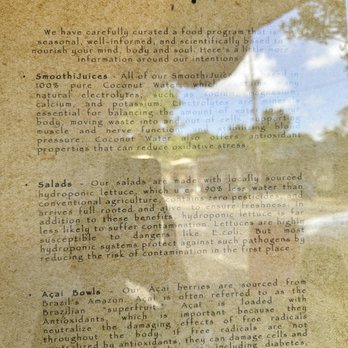 We have carefully curated a food program that is
seasonal, well-informed, and scientifically based to
nourish your mind, body, and soul. Here's a little more
information around our intentions
• SmoothiJuices - All of our SmoothiJuices
100% pure Coconut Water
natural electrolytes, such as
calcium, and potassium. Electrolytes are
essential for balancing the amount of
body, moving waste into
muscle and nerve function
pressure. Coconut Water antioxidant
properties that can reduce oxidative stress
• Salads - Our salads are made with locally sourced
hydroponic lettuce, which 90% less water than
conventional agriculture, zero pesticides,
arrives full rooted and alive to ensure freshness. In
addition to these benefits, hydroponic lettuce is far
less likely to suffer contamination. Lettuces are highly
susceptible to dangers like E.coli. But most
hydroponic systems protect against such pathogens by
reducing the risk of contamination in the first place.
• Açaí Bowls - Our Açaí berries are sourced from
Brazil's Amazon. is often referred to as the
Brazilian "superfruit". Açaí is loaded with
Antioxidants, which is important because they
neutralize the damaging effects of free radicals
throughout the body. If free radicals are not
neutralized by antioxidants, they can damage cells
including diabetes,